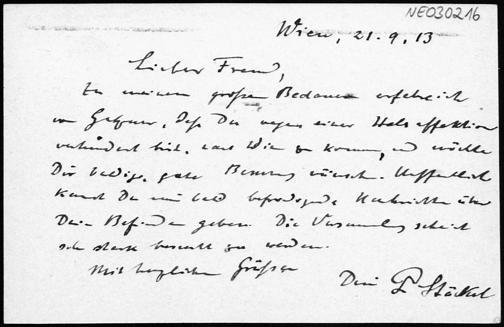 NE030216
Wien, 21.9.13
Lieber Freund,
Zu meinem großen Bedauern erfahre ich
von Gutzmer, daß Du wegen einer Halsaffektion
verhindert bist, nach Wien zu kommen, und möchte
Dir baldige, gute Besserung wünschen. Hoffentlich
kannst Du mir bald befriedigende Nachrichten über
Dein Befinden geben. Die Versammlung scheint
sehr stark besucht zu werden.
Mit herzlichen Grüßen
Dein P. Stäckel